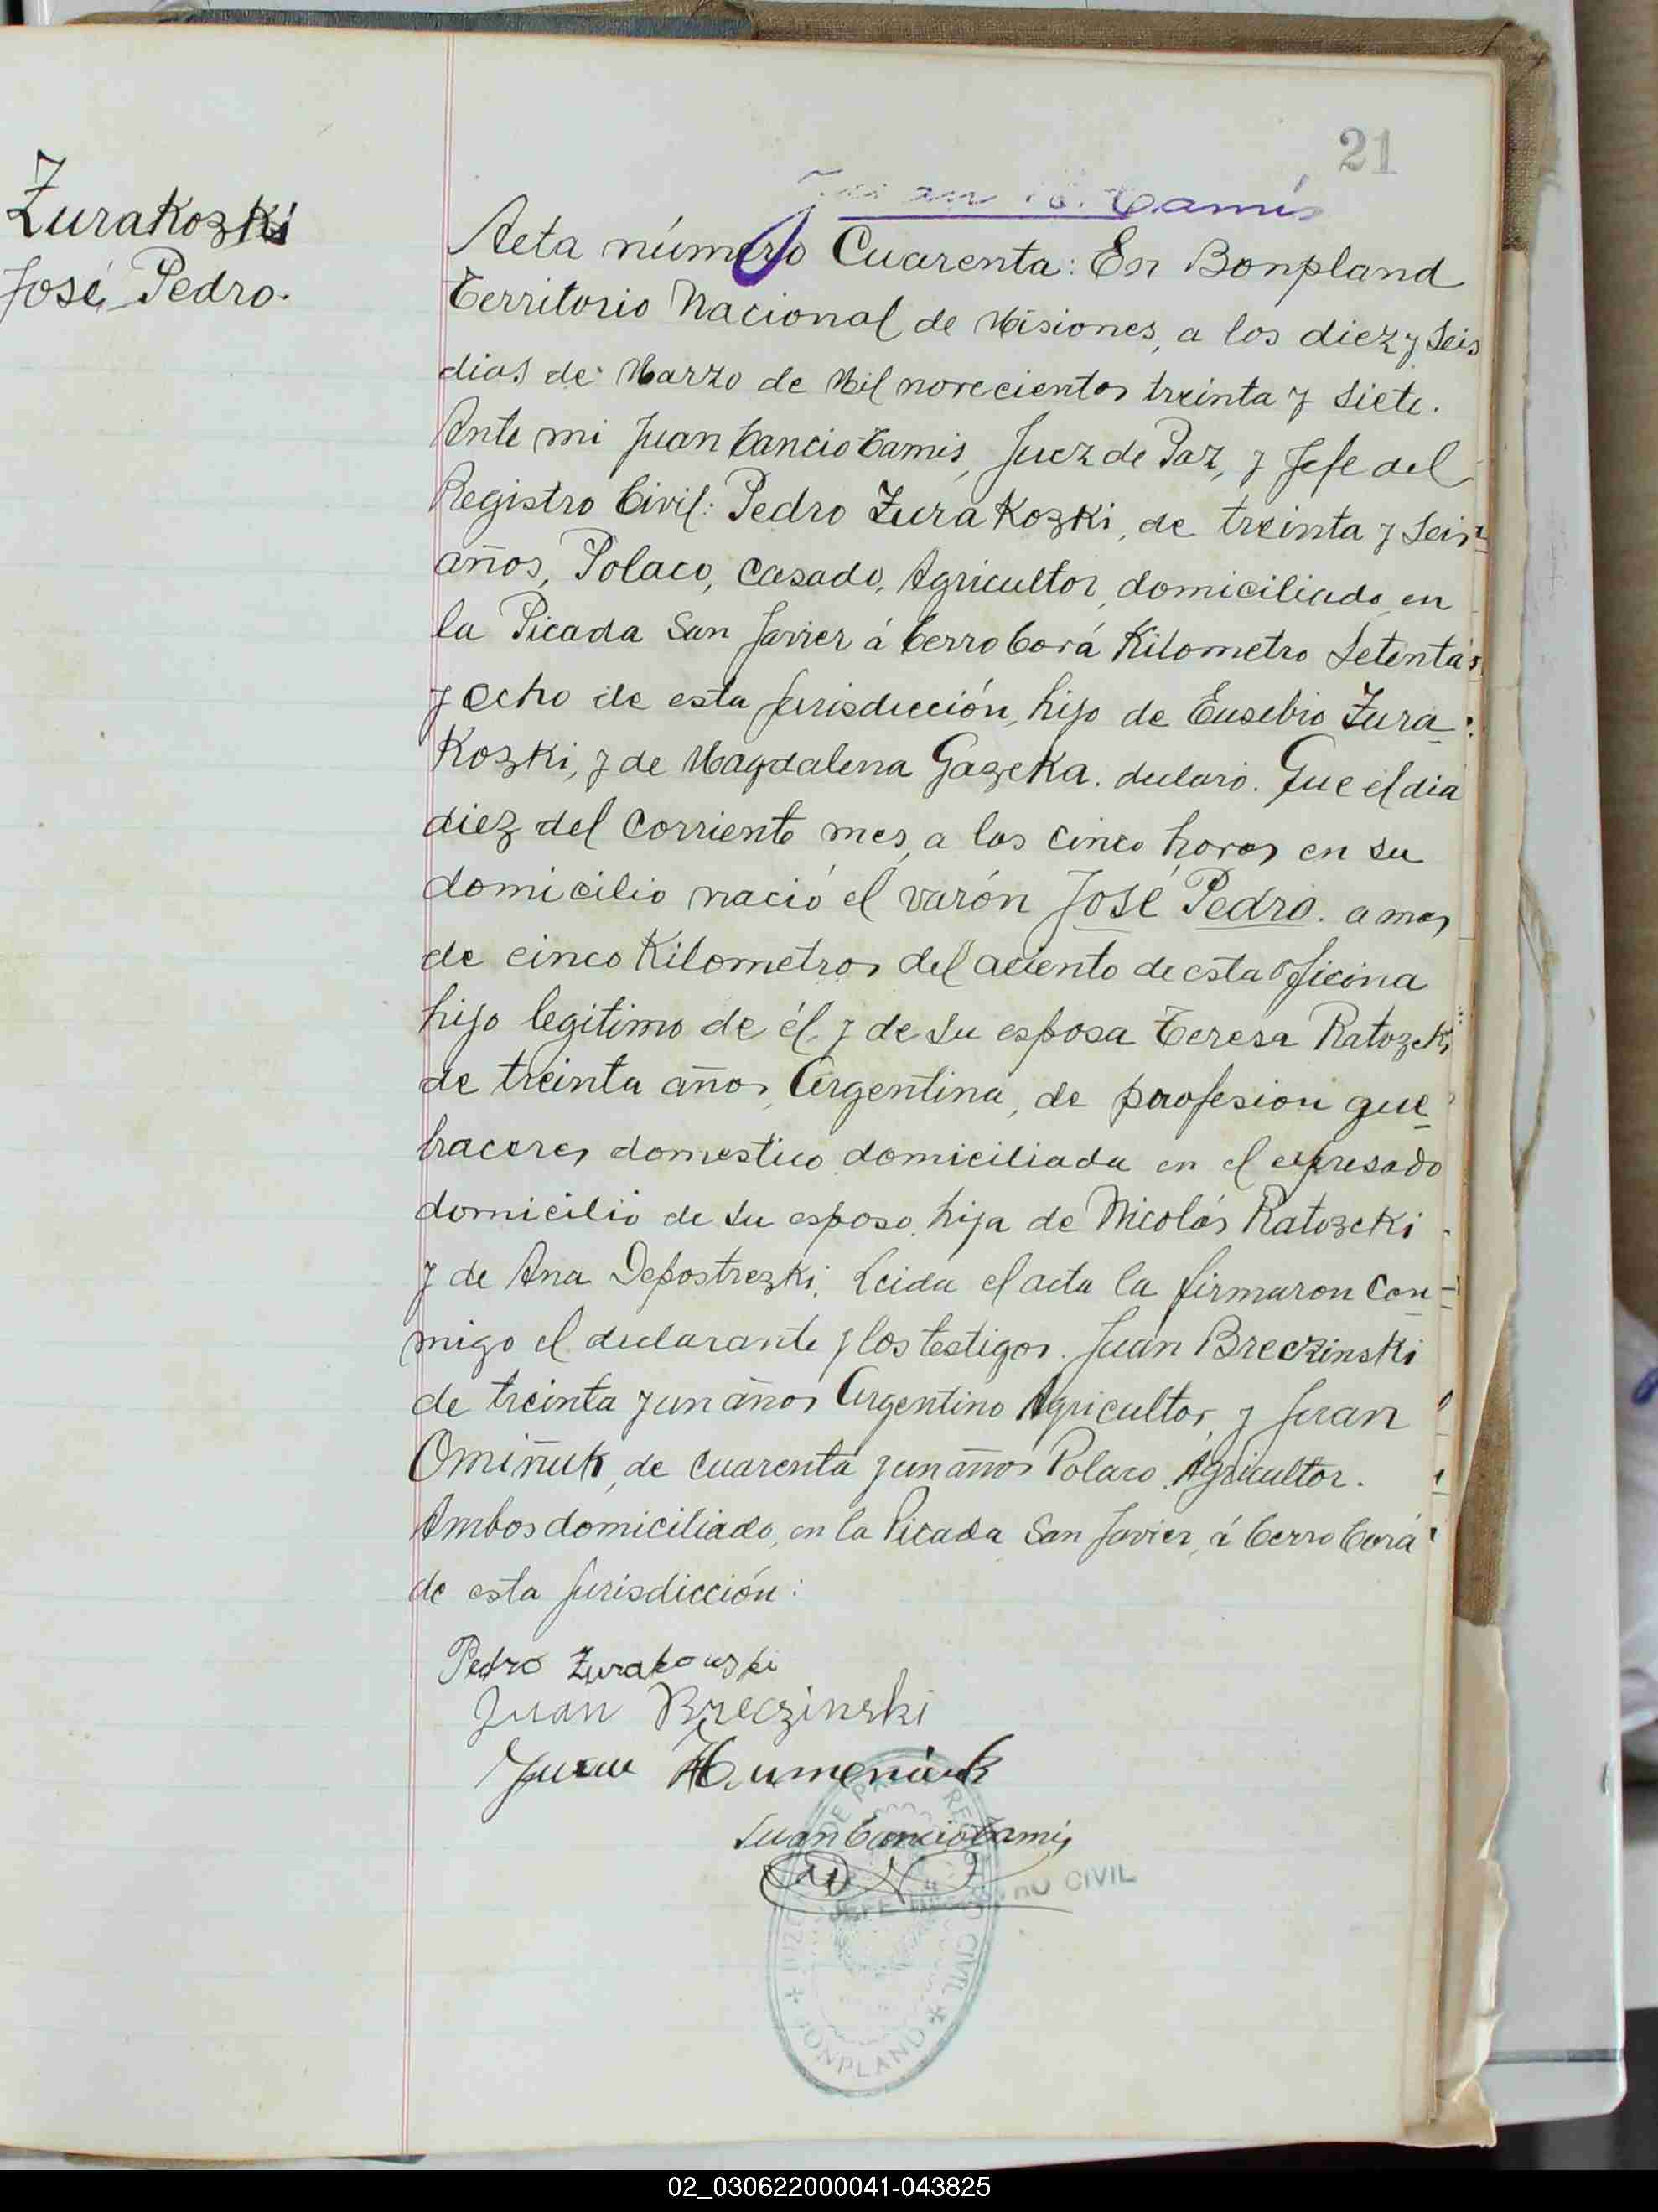 21
Zurakozki
José Pedro.
Camís
Acta número Cuarenta: En Bonpland
Territorio Nacional de Misiones, a los diez y seis
dias de Marzo de Mil novecientos treinta y siete.
Ante mi Juan Cancio Camis, Juez de Paz, y Jefe del
Registro Civil: Pedro Zurakozki, de treinta y seis
años, Polaco, casado, Agricultor, domiciliado en
la Picada San Javier á Cerro Corá Kilometro setenta
y ocho de esta jurisdicción, hijo de Eusebio Zura-
Kozki, y de Magdalena Gazeka. declaró. Que el dia
diez del corriente mes, a las cinco horas en su
domicilio nació el varón José Pedro. a mas
de cinco Kilometros del aciento de esta oficina
hijo legitimo de él, y de su esposa Teresa Ratozeki
de treinta años, Argentina, de profesion que
haceres domestico domiciliada en el expresado
domicilio de su esposo, hija de Nicolás Ratozcki
y de Ana Depostrezki. Leida el acta la firmaron con-
migo el declarante y los testigos. Juan Breczinski
de treinta y un años Argentino Agricultor, y Juan
Omiñuk, de cuarenta y un años Polaco, Agricultor.
Ambos domiciliado, en la Picada San Javier, á Cerro Corá
de esta jurisdicción:
Pedro Zurakowski
Juan Breczinski
Juan Humeniuk
Juan Cancio Camis
JEFE DEL REGISTRO CIVIL
BONPLAND
02_030622000041-043825